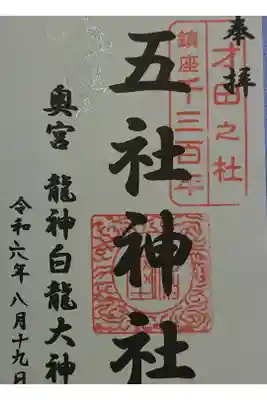 奉拝
才田之杜
鎮座千三百年
五社神社
奥宮 龍神白龍大神
令和六年八月十九日